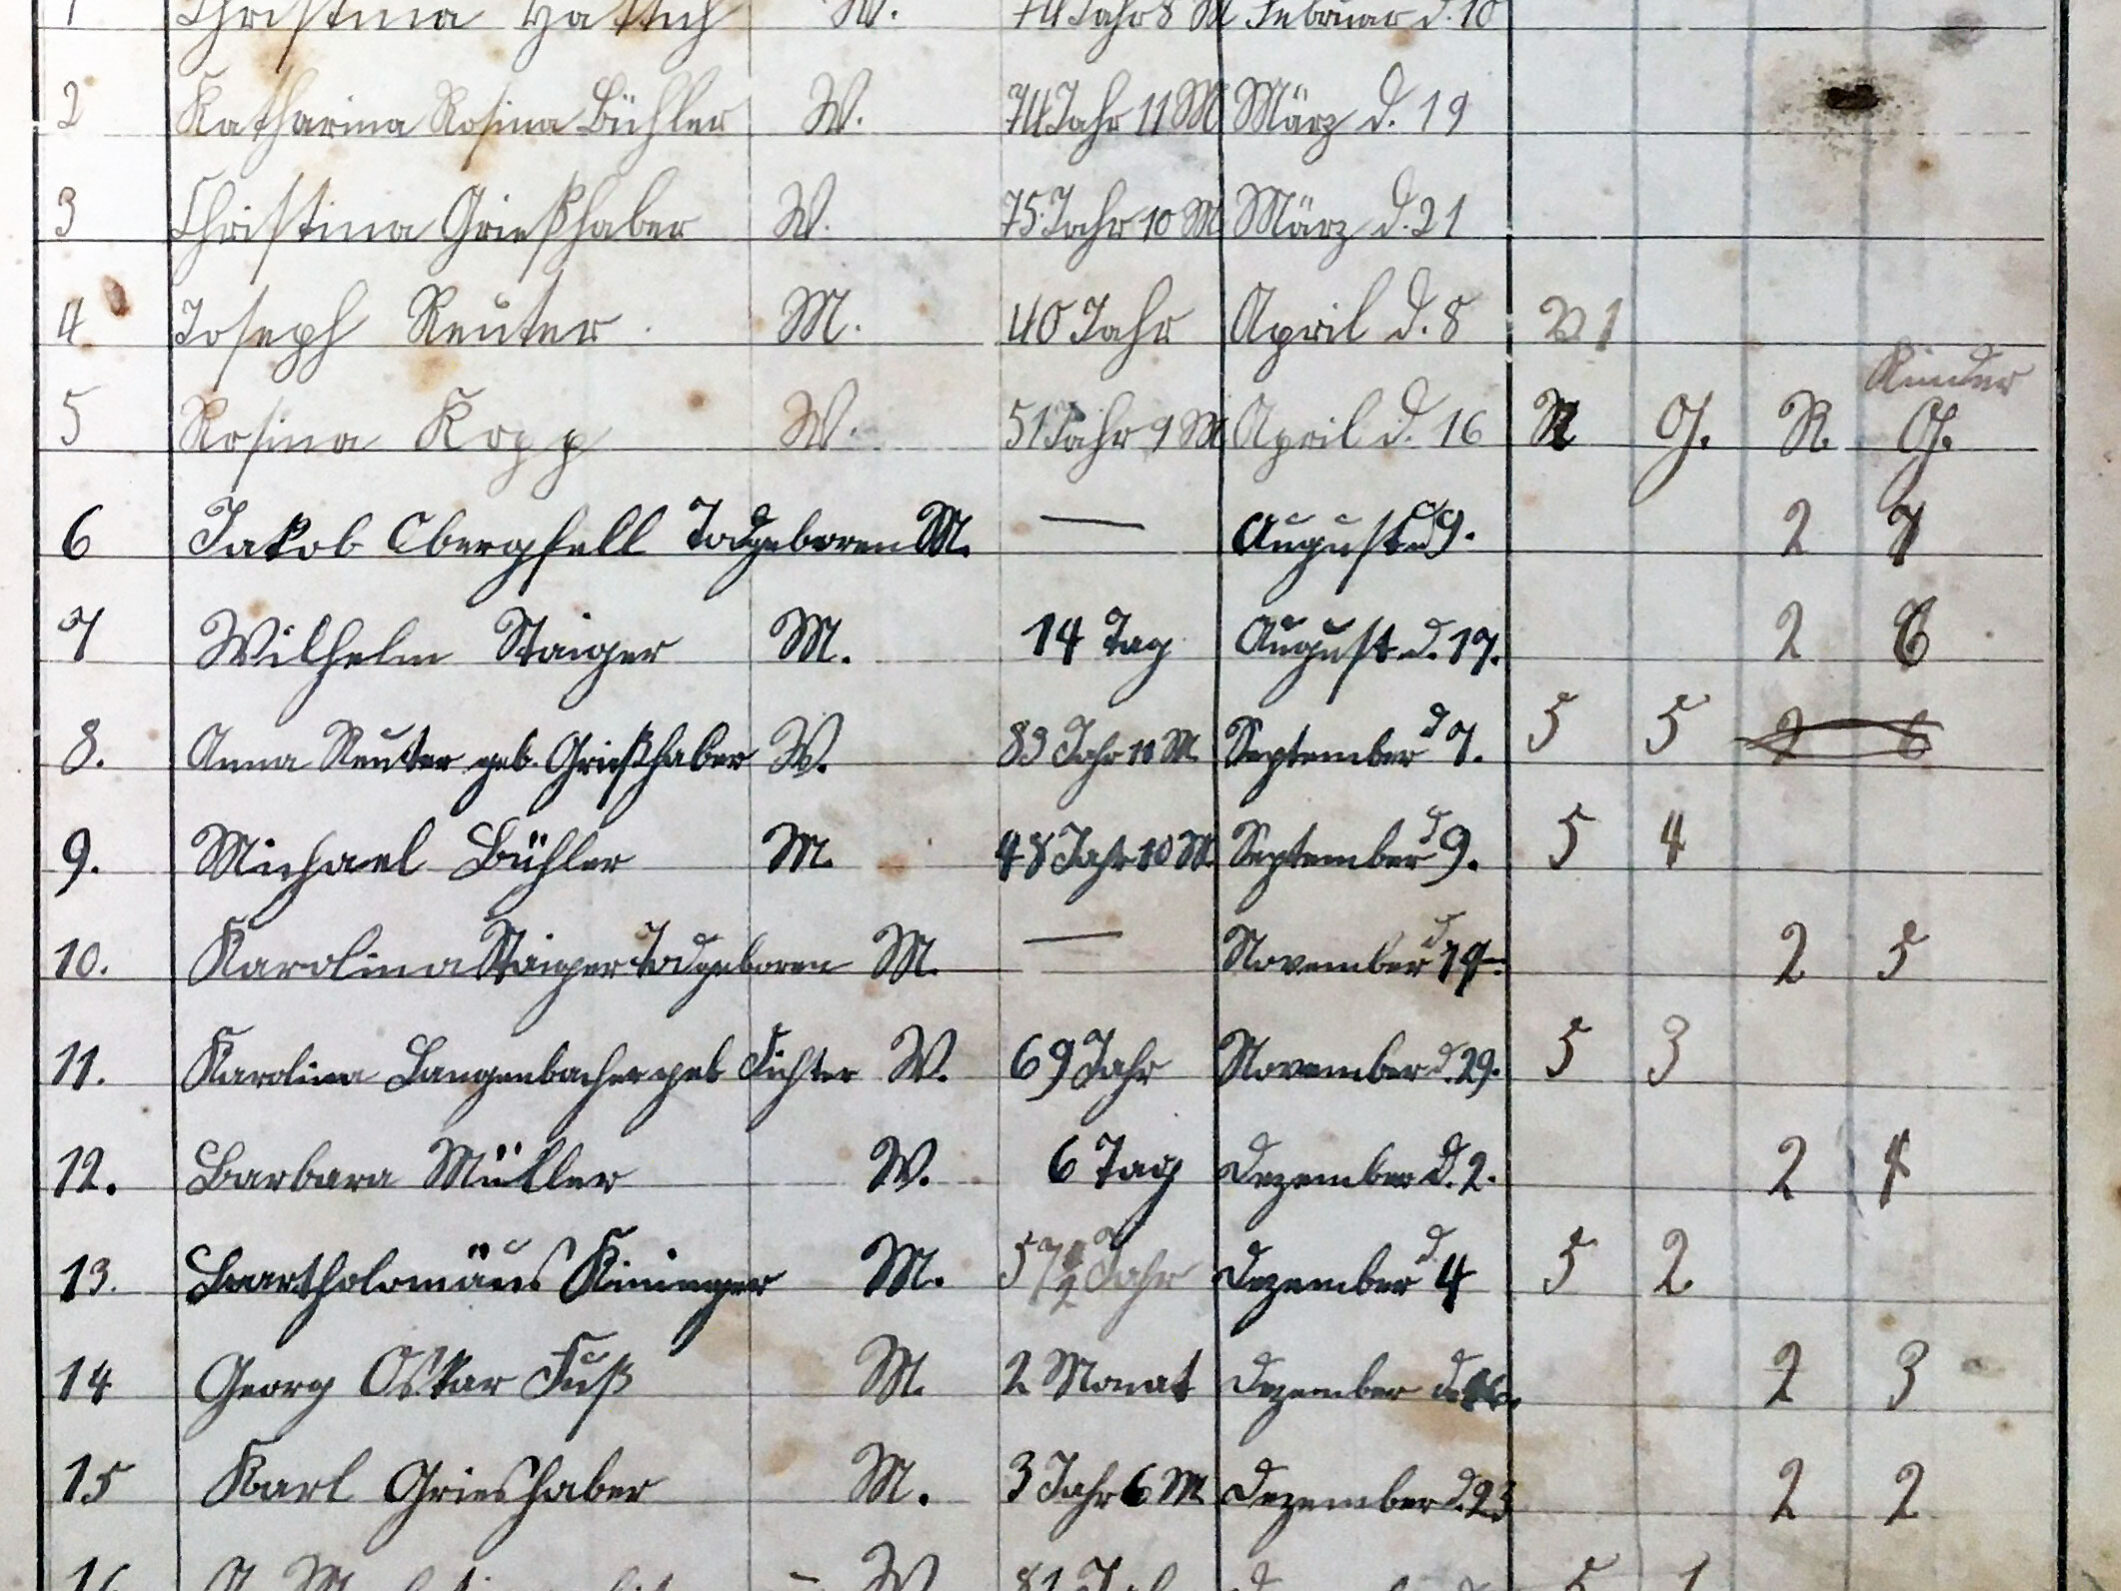 1 Christina Hättich W. 74 Jahr 8 M Februar d. 10
2 Katharina Rosina Bühler W. 74 Jahr 11 M März d. 19
3 Christina Grießhaber W. 75 Jahr 10 M März d. 21
4 Joseph Reuter M. 40 Jahr April d. 8
Kinder
5 Rosina Kopp W. 51 Jahr 9 M April d. 16 R G. R. G.
6 Jakob Obergfell Todgeboren M. — August d 9. 2 7
7 Wilhelm Staiger M. 14 Tag August d. 17. 2 6
8. Anna Reuter geb. Grießhaber W. 83 Jahr 10 M. September d 7. 5 5 2 6
9. Michael Bühler M. 48 Jahr 10 M. September d 9. 5 4
10. Karolina Staiger Todgeboren M. — November d 19. 2 5
11. Karolina Langenbacher geb Fichter W. 69 Jahr November d. 29. 5 3
12. Barbara Müller W. 6 Tag Dezember d. 2. 2 4
13. Bartholomäus Kininger M. 57 1/2 Jahr Dezember d. 4 5 2
14 Georg Oskar Fuß M. 2 Monat Dezember 2 3
15 Karl Grieshaber M. 3 Jahr 6 M Dezember d. 23 2 2
16 W 81 5 1